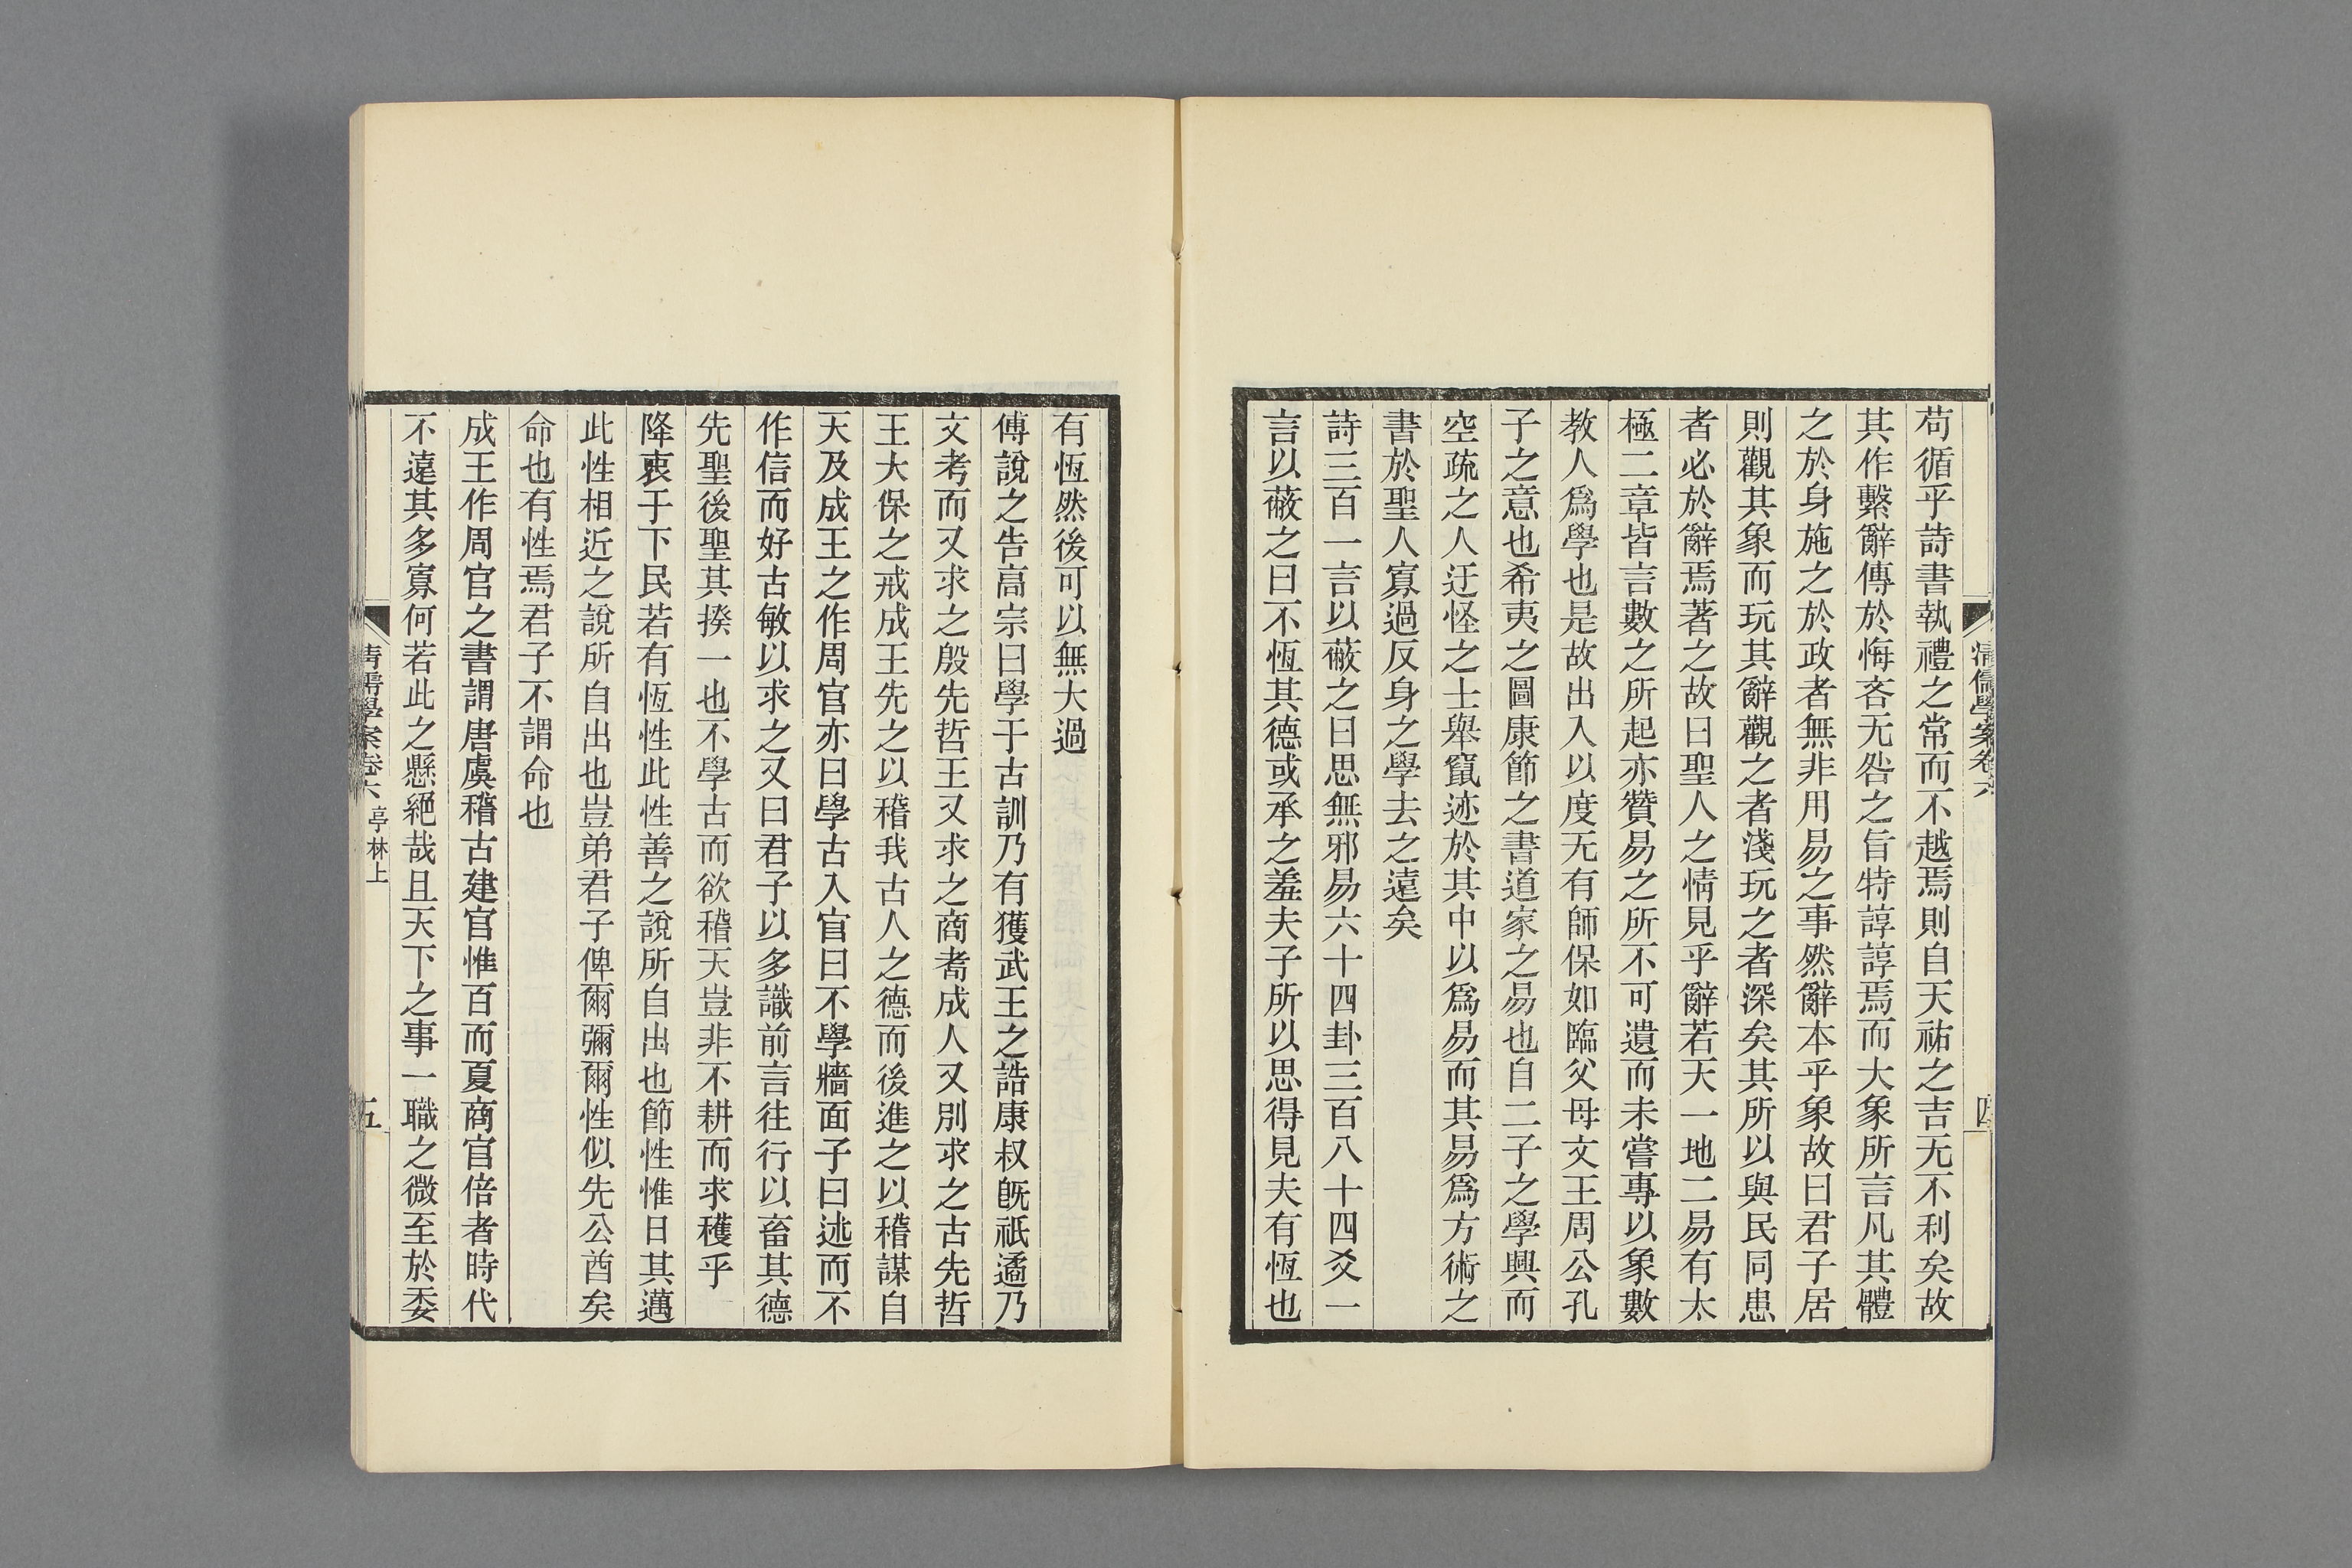 清儒學案卷六
四
苟循乎詩書執禮之常而不越焉則自天祐之吉无不利矣故
其作繫辭傳於悔吝无咎之旨特諄諄焉而大象所言凡其體
之於身施之於政者無非用易之事然辭本乎象故曰君子居
則觀其象而玩其辭觀之者淺玩之者深矣其所以與民同患
者必於辭焉著之故曰聖人之情見乎辭若天一地二易有太
極二章皆言數之所起亦贊易之所不可遺而未嘗專以象數
教人爲學也是故出入以度无有師保如臨父母文王周公孔
子之意也希夷之圖康節之書道家之易也自二子之學興而
空疏之人迂怪之士舉竄迹於其中以爲易而其易爲方術之
書於聖人寡過反身之學去之遠矣
詩三百一言以蔽之曰思無邪易六十四卦三百八十四爻一
言以蔽之曰不恆其德或承之羞夫子所以思得見夫有恆也
有恆然後可以無大過
傅說之告高宗曰學于古訓乃有獲武王之誥康叔旣祇遹乃
文考而又求之殷先哲王又求之商耈成人又別求之古先哲
王大保之戒成王先之以稽我古人之德而後進之以稽謀自
天及成王之作周官亦曰學古入官曰不學牆面子曰述而不
作信而好古敏以求之又曰君子以多識前言往行以畜其德
先聖後聖其揆一也不學古而欲稽天豈非不耕而求穫乎
降衷于下民若有恆性此性善之說所自出也節性惟日其邁
此性相近之說所自出也豈弟君子俾爾彌爾性似先公酋矣
命也有性焉君子不謂命也
成王作周官之書謂唐虞稽古建官惟百而夏商官倍者時代
不遠其多寡何若此之懸絕哉且天下之事一職之微至於委
清儒學案卷六 亭林上
五